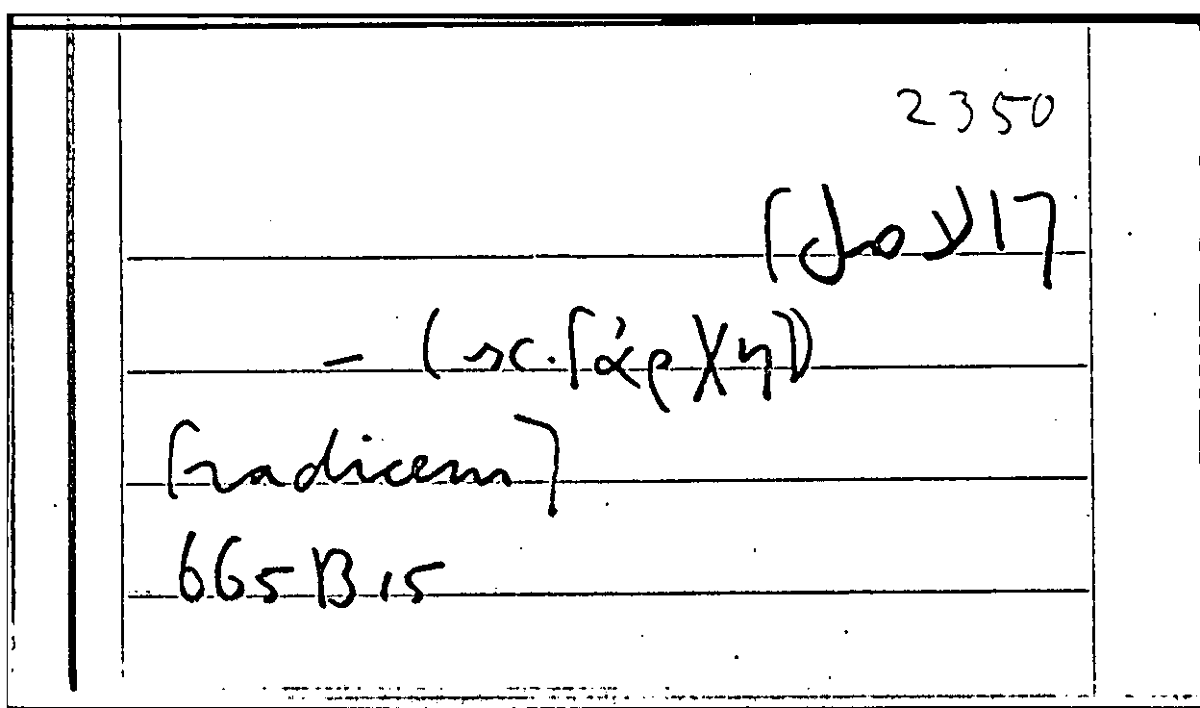 2350
⌈الاصل⌉
– (sc.⌈ἀρχη⌉)
⌈radicem⌉
665B15